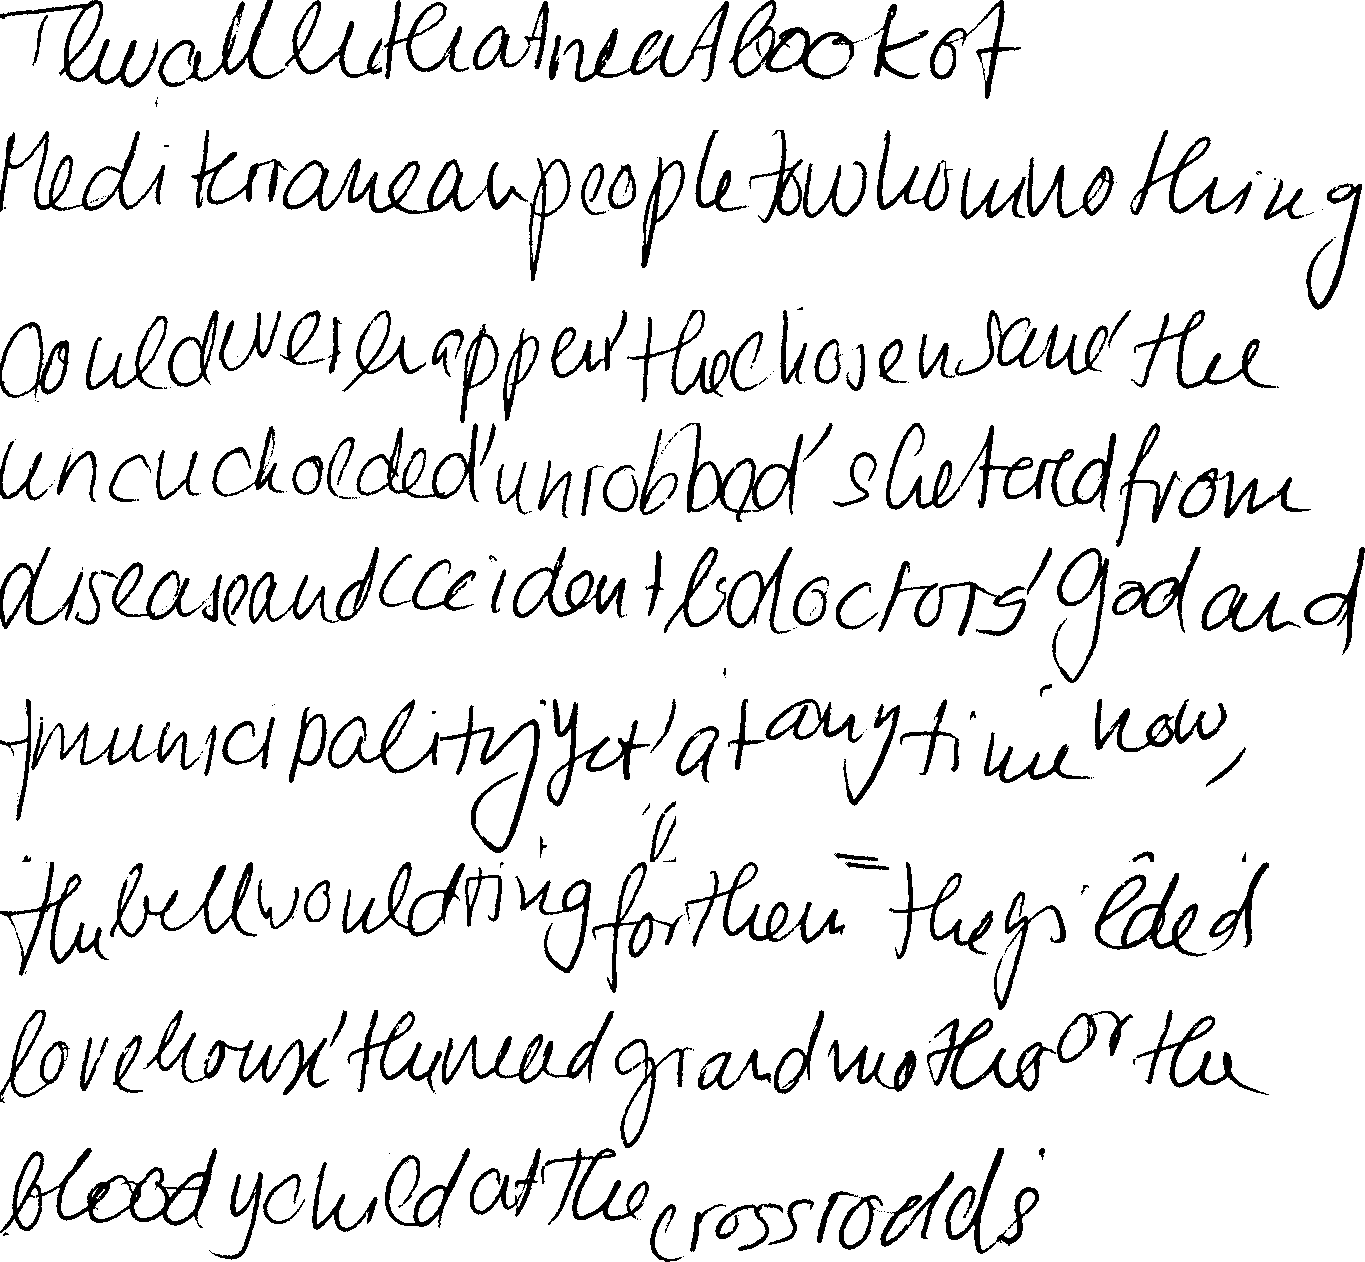 They all had that neat book of
Mediterranean people to whom nothing
Could ever happen' the chosen sane' the
uncuckolded' unrobbed' sheltered from
disease and accident by doctors' God and
municipality yet' at any time now,
the bell would ring for them = the gilded
love house' the mad grandmother or the
bloody child at the crossroads